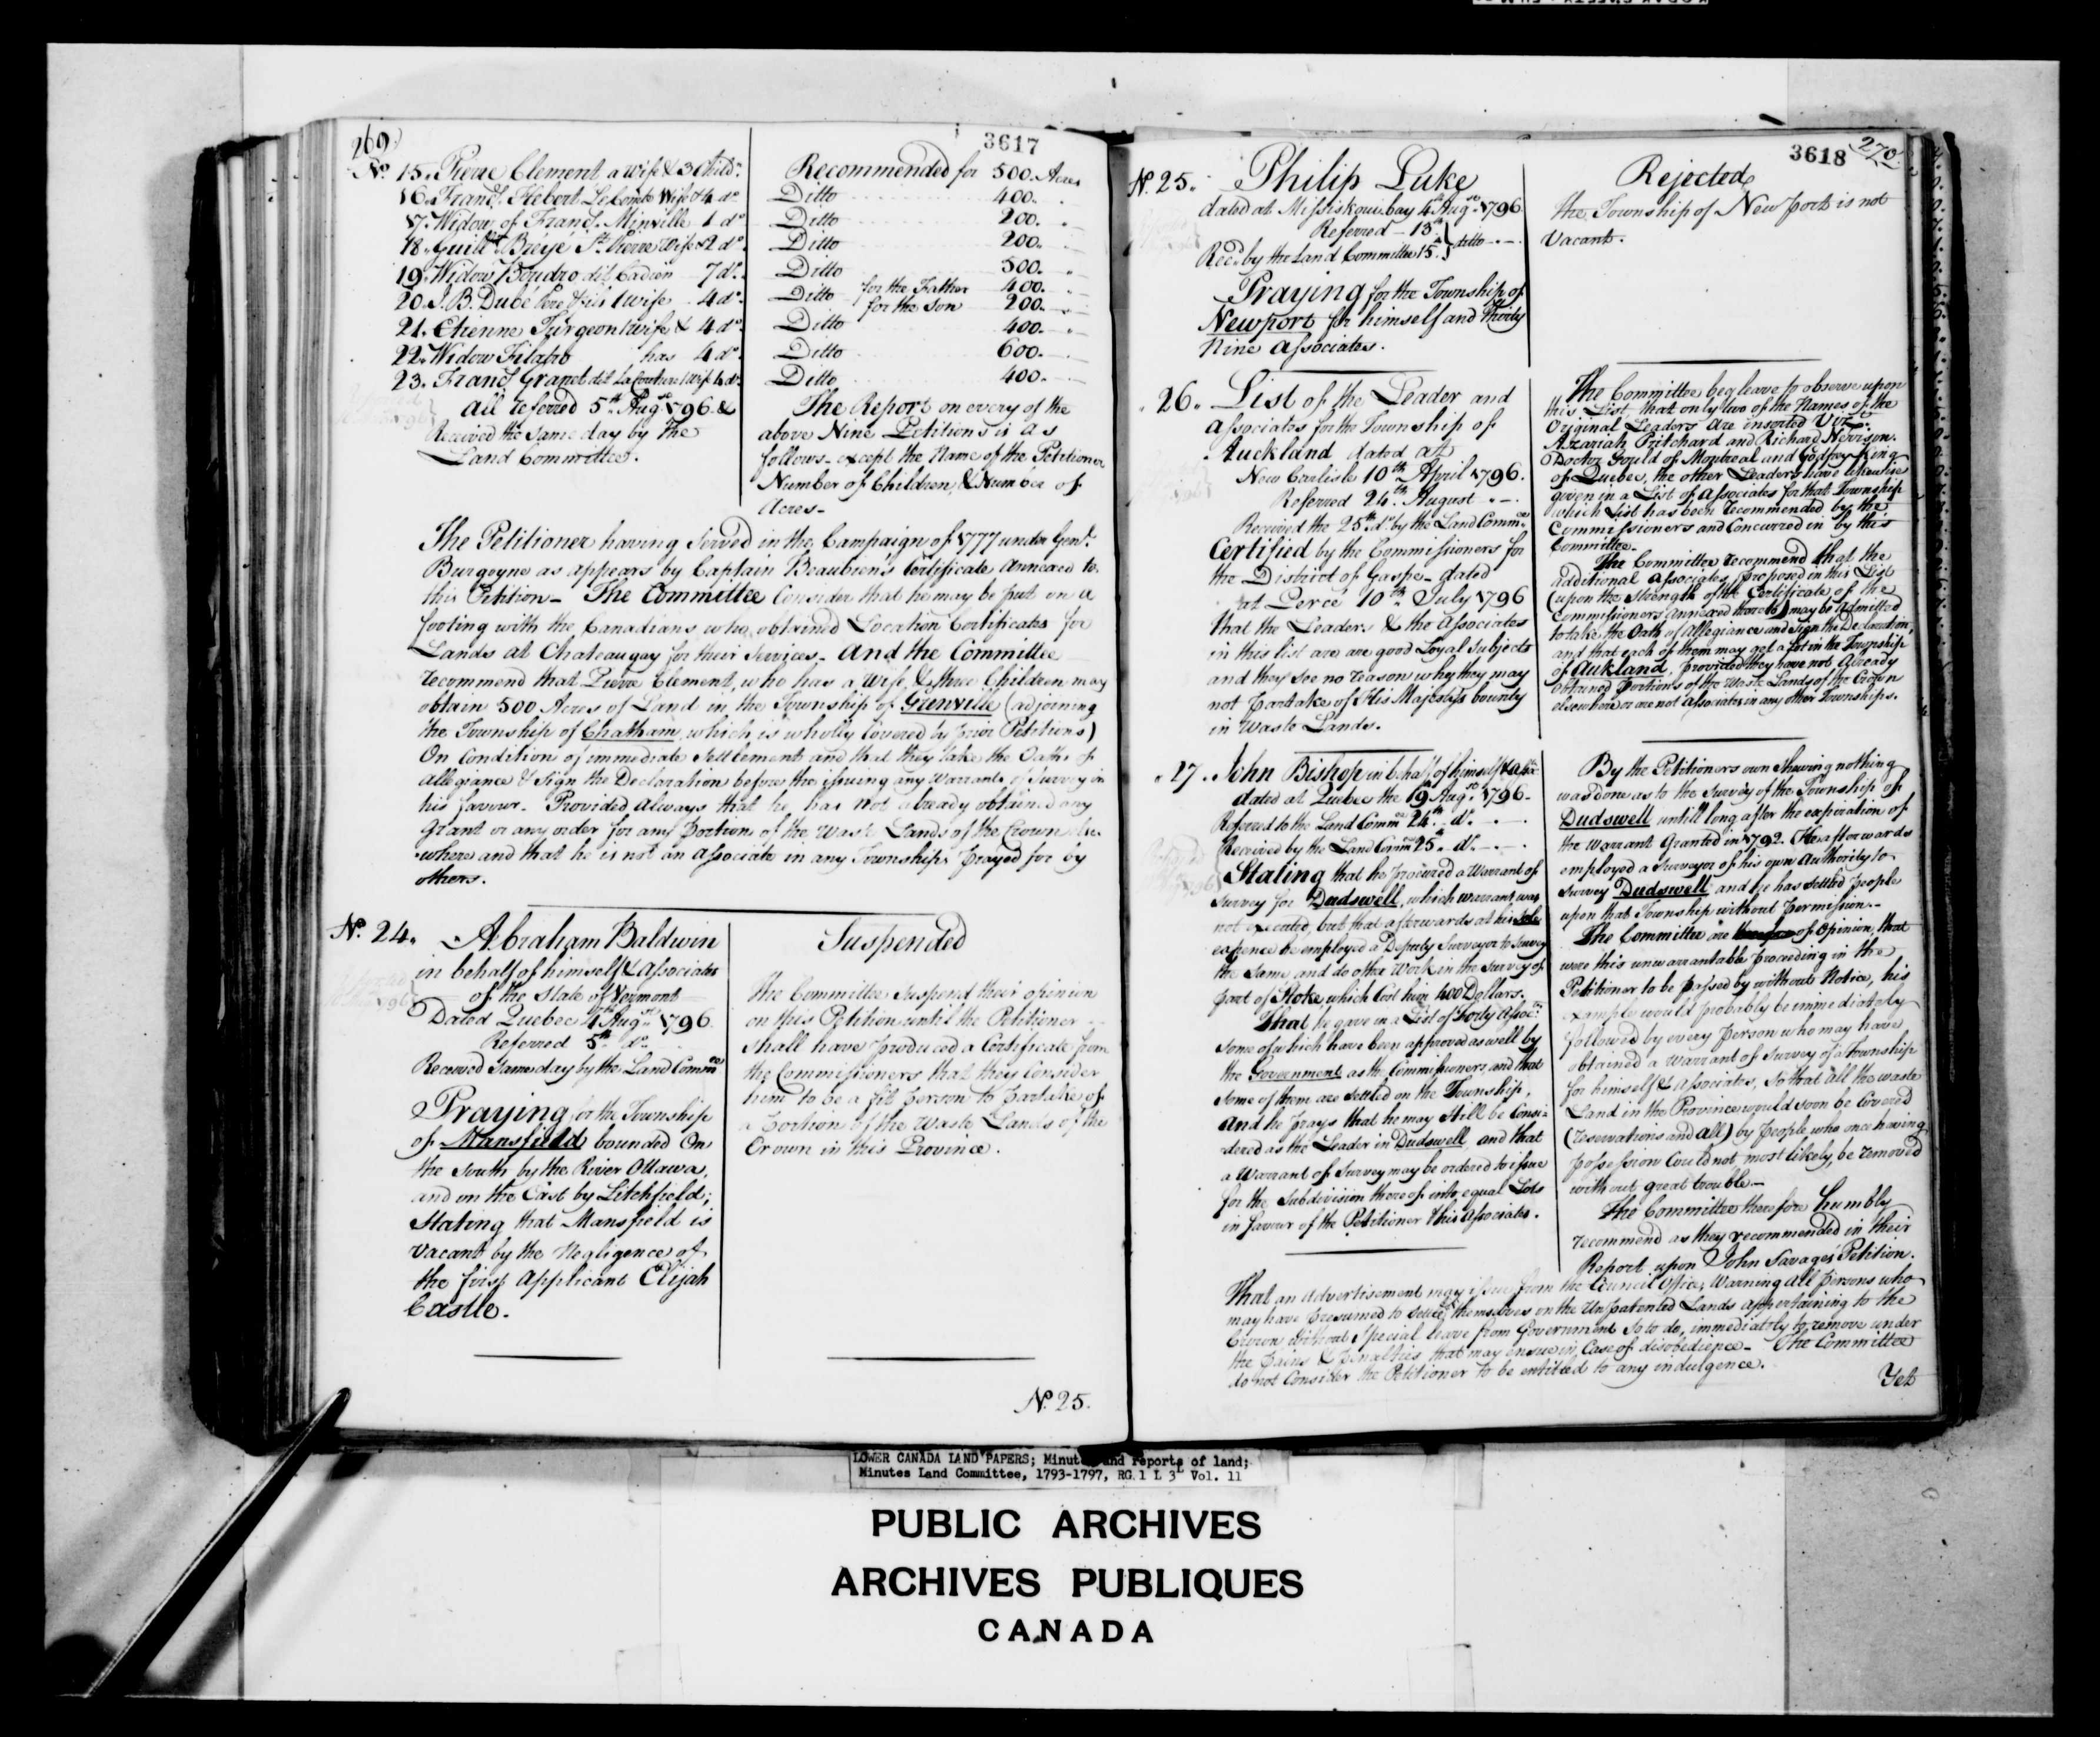 269)
3617
No. 15. Pierre Clement a Wife & 3 Child.n
Recommended for 500. Acres
16. Franc.s Hebert Le Comte Wife & 4 do.
Ditto 400.
17. Widow of Franc.s Minville 1 do
Ditto 200.
18. Guill.t Breyé St. Pierre Wife & 2 do.
Ditto 200.
19. Widow Boudro dit Cadien 7 do.
Ditto 500.
20. J. B. Dubé Pere & fils 1 wife 4 do.
Ditto for the Father 400.
for the Son 200.
21. Etienne Turgeon 1 wife & 4 do.
Ditto 400.
22. Widow Filatro has 4 do.
Ditto 600.
23. Franc.s Granet dit 1 Wife 4 do.
Ditto 400.
All referred 5th Augst 1796 &
Received the same day by the
Land Committee.
The Report on every of the
above Nine Petitions is as
follows except the Name of the Petitioner
Number of Children, & Number of
Acres-
The Petitioner having Served in the Campaign of 1777 under Genl.
Burgoyne as appears by Captain Beaubien's Certificate annexed to
this Petition - The Committee Consider that he may be put on a
footing with the Canadians who obtained Location Certificates for
Lands at Chateaugay for their Services - And the Committee
recommend that Pierre Clement, who has a Wife & three Children may
obtain 500 Acres of Land in the Township of Grenville (adjoining
the Township of Chatham which is wholly Covered by prior Petitions)
On Condition of immediate Settlement and that they take the Oaths of
Allegiance & Sign the Declaration before the issuing any Warrant of Survey in
his favour. Provided Always that he has not already obtained any
Grant or any order for any Portion of the Waste Lands of the Crown else-
where and that he is not an Associate in any Townships prayed for by
others.
No. 24. Abraham Baldwin
in behalf of himself & Associates
of the State of Vermont
Dated Quebec 4th Augst 1796.
Referred 5th do.
Received same day by the Land Commee
Praying for the Township
of Mansfield bounded On
the South by the River Ottawa,
and on the East by Litchfield;
Stating that Mansfield is
Vacant by the Negligence of
the first applicant Elijah
Castle.
Suspended
The Committee Suspend their opinion
on this Petition until the Petitioner
shall have produced a Certificate from
the Commissioners that they Consider
him to be a fit person to partake of
a Portion of the Waste Lands of the
Crown in this Province.
No. 25.
3618
270
No. 25. Philip Luke
dated at Missiskoui bay 4th Augst 1796
Referred - 13th
Recd. by the Land Committee 15th } ditto
Praying for the Township of
Newport for himself and Thirty
Nine Associates.
Rejected
The Township of Newport is not
Vacant.
26. List of the Leader and
Associates for the Township of
Auckland dated at
New Carlisle 10th April 1796.
Referred 24th August
Received the 25th do by the Land Commee
Certified by the Commissioners for
the District of Gaspe - dated
at Percé 10th July 1796
that the Leaders & the Associates
in this list are are good Loyal Subjects
and they See no reason why they may
not Partake of His Majesty's bounty
in Waste Lands.
The Committee beg leave to observe upon
this List, that only two of the Names of the
Original Leaders are inserted Viz.
Azariah Pritchard and Richard Nevison.
Doctor Gould of Montreal and Godfrey King
of Quebec, the other Leaders have likewise
given in a List of Associates for that Township
which List has been recommended by the
Commissioners and Concurred in by this
Committee.
The Committee recommend that the
additional Associates proposed in this List
(upon the strength of the Certificate of the
Commissioners annexed thereto) may be Admitted
to take the Oath of Allegiance and sign the Declaration,
and that each of them may get a Lot in the Township
of Aukland, provided they have not Already
obtained Portions of the Waste Lands of the Crown
elsewhere or are not Associates in any other Townships.
27. John Bishop in behalf of himself &
dated at Quebec the 19 Augst 1796.
Referred to the Land Commee 24th do.
Received by the Land Commee 25th do.
Stating that he procured a Warrant of
Survey for Dudswell, which warrant was
not executed, but that afterwards at his Sole
expence he employed a Deputy Surveyor to Survey
the Same and do other Work in the Survey of
part of Stoke which Cost him 400 Dollars.
That he gave in a List of Forty
some of which have been approved as well by
the Government as the Commissioners and that
Some of them are settled on the Township,
And he prays that he may Still be Consi-
dered as the Leader in Dudswell, and that
a Warrant of Survey may be ordered to issue
for the Subdivision thereof into equal Lots
in favour of the Petitioner & his Associates.
By the Petitioners own Shewing nothing
was done as to the Survey of the Township of
Dudswell untill long after the expiration of
the Warrant Granted in 1792. He afterwards
employed a Surveyor of his own Authority to
Survey Dudswell and he has settled people
upon that Township without Permission -
The Committee are of Opinion, that
were this unwarrantable proceeding in the
Petitioner to be passed by without Notice, his
example would probably be immediately
followed by every person who may have
obtained a Warrant of Survey of a Township
for himself & Associates, So that all the waste
Land in the Province would soon be Covered
(reservations and all) by people who once having
possession Could not most likely, be removed
without great trouble -
The Committee therefore humbly
recommend as they recommended in their
Report upon John Savages Petition.
That an Advertisement may issue from the Council Office, Warning all Persons who
may have presumed to Settle themselves on the Unpatented Lands appertaining to the
Crown without Special leave from Government So to do, immediately to remove under
the pains & penalties that may ensue in Case of disobedience - The Committee
do not Consider the Petitioner to be entitled to any indulgence.
Yet
LOWER CANADA LAND PAPERS; Minutes and reports of land;
Minutes Land Committee, 1793-1797, RG 1 L 3 Vol. 11
PUBLIC ARCHIVES
ARCHIVES PUBLIQUES
CANADA